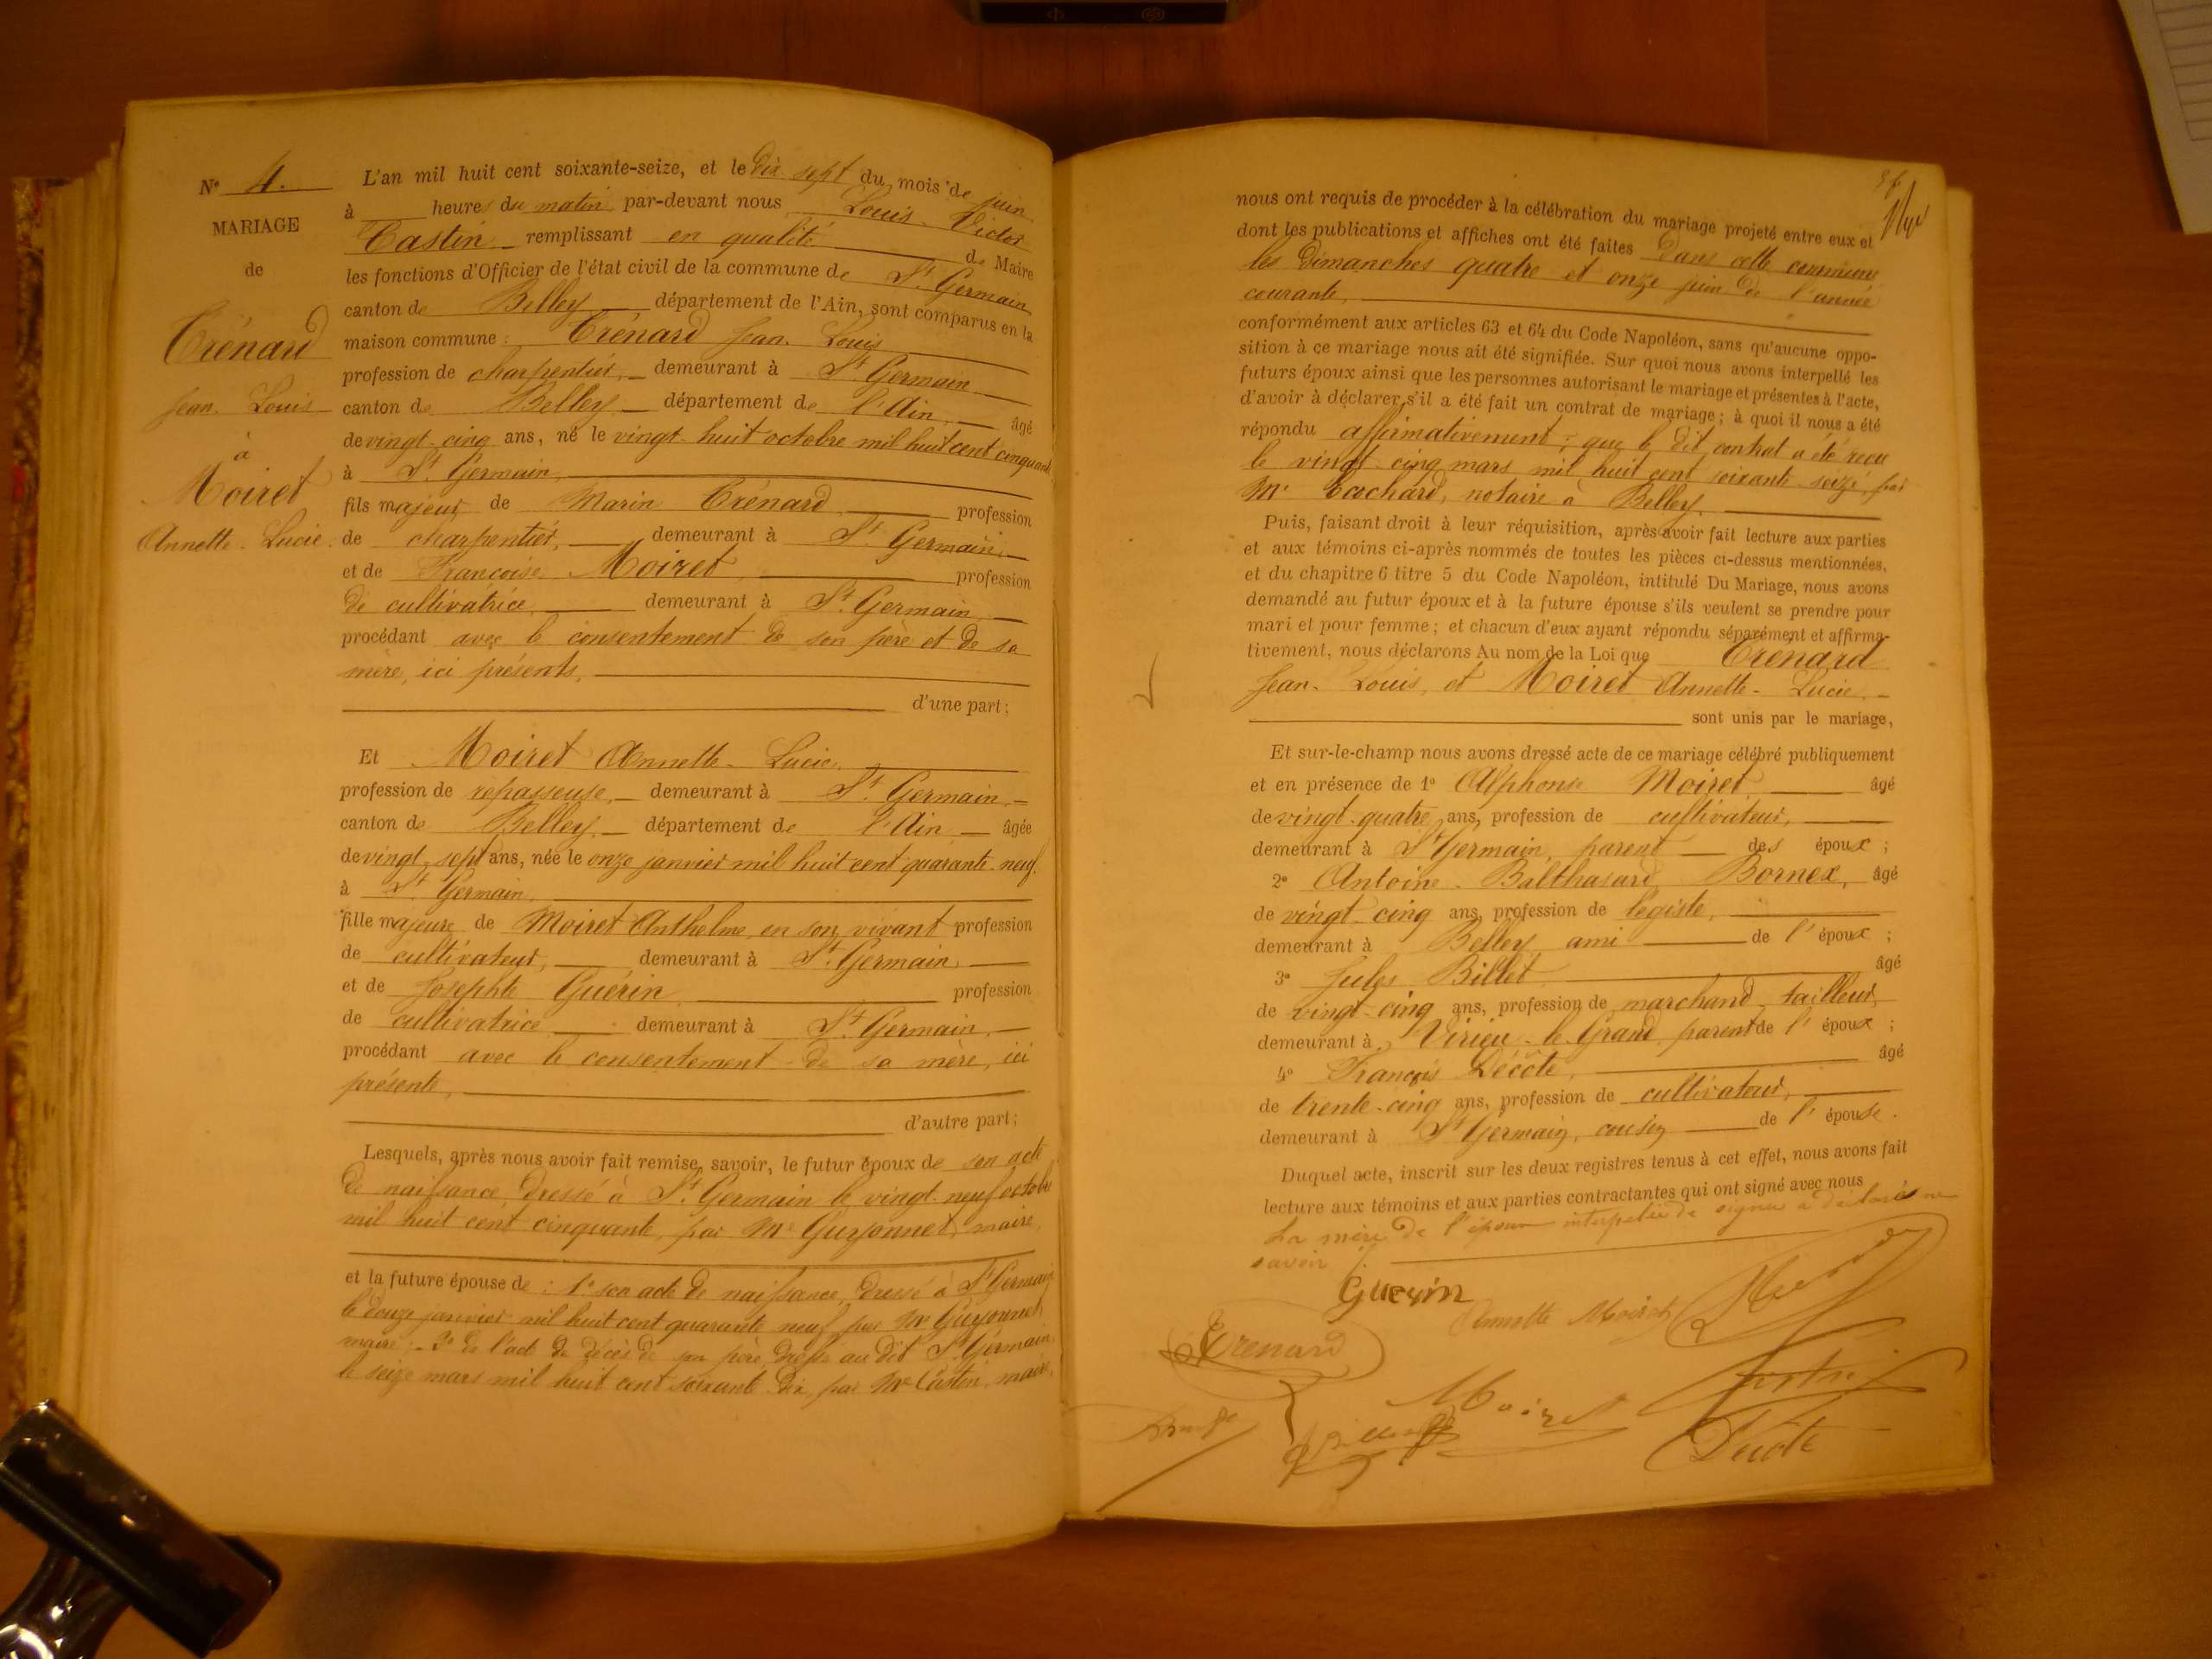 N° 4.
MARIAGE
de
Trénard
Jean-Louis
à
Moiret
Annette-Lucie.
L'an mil huit cent soixante-seize, et le dix-sept du mois de juin
à heures du matin par-devant nous Louis-Victor
Castin remplissant en qualité de Maire
les fonctions d'Officier de l'état civil de la commune de St Germain
canton de Belley département de l'Ain, sont comparus en la
maison commune : Trénard Jean-Louis
profession de charpentier, demeurant à St Germain
canton de Belley département de l'Ain âgé
de vingt-cinq ans, né le vingt-huit octobre mil huit cent cinquante
à St Germain,
fils majeur de Marin Trénard profession
de charpentier, demeurant à St Germain,
et de Françoise Moiret, profession
de cultivatrice, demeurant à St Germain
procédant avec le consentement de son père et de sa
mère, ici présents,
d'une part;
Et Moiret Annette-Lucie,
profession de repasseuse, demeurant à St Germain,
canton de Belley, département de l'Ain âgée
de vingt-sept ans, née le onze janvier mil huit cent quarante-neuf
à St Germain,
fille majeure de Moiret Anthelme, en son vivant profession
de cultivateur, demeurant à St Germain,
et de Josephte Guérin, profession
de cultivatrice demeurant à St Germain,
procédant avec le consentement de sa mère, ici
présente,
d'autre part;
Lesquels, après nous avoir fait remise, savoir, le futur époux de son acte
de naissance, dressé à St Germain le vingt-neuf octobre
mil huit cent cinquante, par Mr Guyonnet, maire,
et la future épouse de : 1° son acte de naissance, dressé à St Germain
le douze janvier mil huit cent quarante neuf par Mr Guyonnet
maire; 2° de l'acte de décès de son père, dressé au dit St Germain,
le seize mars mil huit cent soixante-dix, par Mr Castin, maire,
nous ont requis de procéder à la célébration du mariage projeté entre eux et
dont les publications et affiches ont été faites dans cette commune
les dimanches quatre et onze juin de l'année
courante,
conformément aux articles 63 et 64 du Code Napoléon, sans qu'aucune oppo-
sition à ce mariage nous ait été signifiée. Sur quoi nous avons interpellé les
futurs époux ainsi que les personnes autorisant le mariage et présentes à l'acte,
d'avoir à déclarer s'il a été fait un contrat de mariage; à quoi il nous a été
répondu affirmativement; que le dit contrat a été reçu
le vingt-cinq mars mil huit cent soixante-seize, par
Mr notaire à Belley.
Puis, faisant droit à leur réquisition, après avoir fait lecture aux parties
et aux témoins ci-après nommés de toutes les pièces ci-dessus mentionnées,
et du chapitre 6 titre 5 du Code Napoléon, intitulé Du Mariage, nous avons
demandé au futur époux et à la future épouse s'ils veulent se prendre pour
mari et pour femme; et chacun d'eux ayant répondu séparément et affirma-
tivement, nous déclarons Au nom de la Loi que Trénard
Jean-Louis, et Moiret Annette-Lucie
sont unis par le mariage,
Et sur-le-champ nous avons dressé acte de ce mariage célébré publiquement
et en présence de 1° Alphonse Moiret âgé
de vingt-quatre ans, profession de cultivateur,
demeurant à St Germain, parent des époux ;
2° Antoine-Balthasard Bornex, âgé
de vingt-cinq ans, profession de légiste,
demeurant à Belley ami de l'époux ;
3° Jules Billet âgé
de vingt-cinq ans, profession de marchand-tailleur,
demeurant à Virieu-le-Grand, parent de l'époux ;
4° François Décôte, âgé
de trente-cinq ans, profession de cultivateur,
demeurant à St Germain, cousin de l'épouse.
Duquel acte, inscrit sur les deux registres tenus à cet effet, nous avons fait
lecture aux témoins et aux parties contractantes qui ont signé avec nous
La mère de l'époux interpelée de signer a déclaré ne
savoir
Guerin
Annette Moiret
Trenard
Moiret
Castin
Décôte